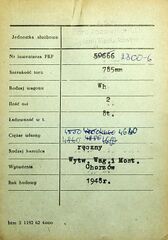 Jednostka służbowa
Nr inwentarza PKP 59666 1300-6
Szerokość toru 785mm
Rodzaj wagonu Wh
Ilość osi 2
Ładowność w t. 8t.
Ciężar własny 4640
Rodzaj hamulca ręczny
Wytwórnia Wytw. Wag. i Mont.
Chorzów
Rok budowy 1948r.